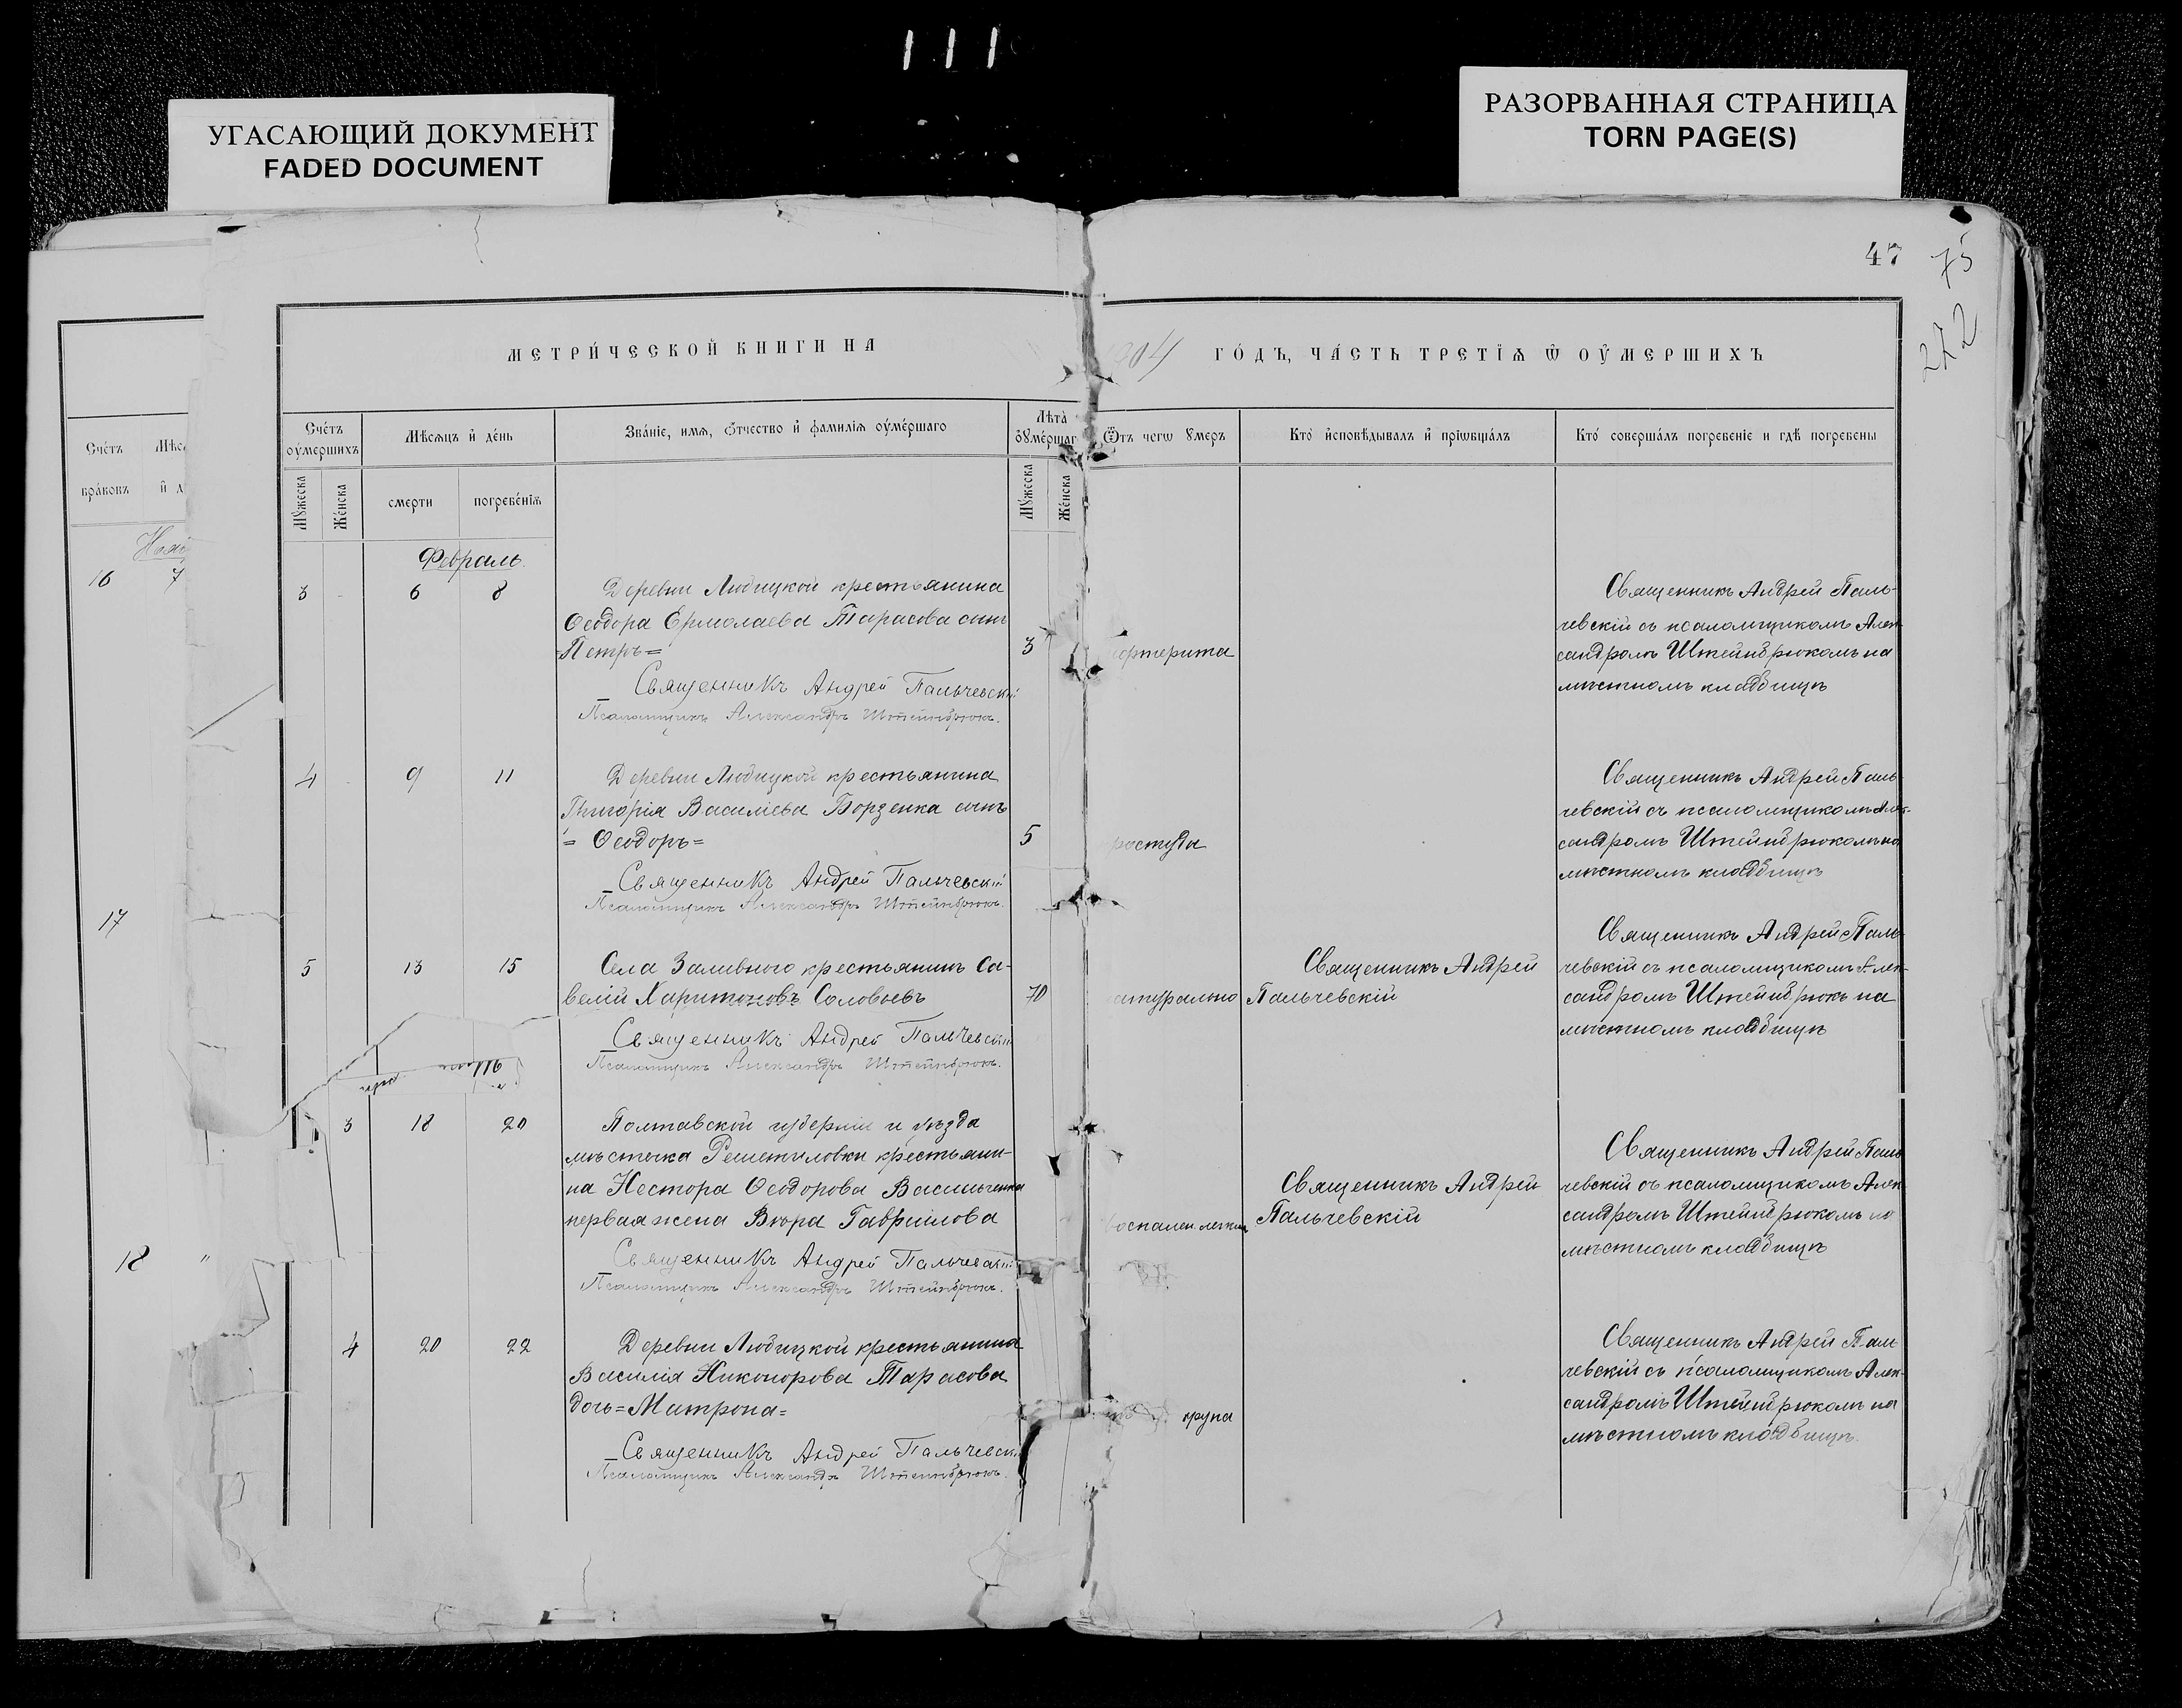 УГАСАЮЩИЙ ДОКУМЕНТ
FADED DOCUMENT
РАЗОРВАННАЯ СТРАНИЦА
TORN PAGE(S)
47
75
272
МЕТРИ́ЧЕСКОЙ КНИГИ НА
904 ГО́ДЪ, ЧА́СТЬ ТРЕТІѦ Ѿ ОУ҆МЕРШИХЪ
Сче́тъ
бра́ковъ
16 7
17
18 "
Сче́тъ
оу҆ме́ршихъ
Мꙋ́жеска
Же́нска
Мѣ́сѧцъ и҆ де́нь
смерти
погребе́нїѧ
Зва́нїе, имѧ, ѻ҆тчество и҆ фамилїѧ оу҆ме́ршаго
Лѣта̀
оу҆ме́ршаг
Мꙋ́жеска
Же́нска
Ѿтъ чегѡ ꙋмеръ
Кто̀ и҆сповѣ́дывалъ и҆ прїѡбща́лъ
Кто́ соверша́лъ погребе́нїе и гдѣ̀ погребены
Февраль.
3 - 6 8
Деревни Людицкой крестьянина
Ѳеодора Ермолаева Тарасова сынъ
=Петръ=
3
Священникъ Андрей Пальчевскій
Псаломщикъ Александръ Штейнбрюкъ.
Священникъ Андрей Паль-
чевскій съ псаломщикомъ Алек-
сандромъ Штейнбрюкомъ на
мѣстномъ кладбищѣ
4 - 9 11
Деревни Людицкой крестьянина
Григорія Василіева Борзенка сынъ
= Ѳеодоръ=
5
ростуда
Священникъ Андрей Пальчевскій
Псаломщикъ Александръ Штейнбрюкъ.
Священникъ Андрей Паль-
чевскій съ псаломщикомъ Алек-
сандромъ Штейнбрюкомъ на
мѣстномъ кладбищѣ
5 13 15
Села Заливного крестьянинъ Са-
велій Харитоновъ Соловьевъ
70
атурально
Священникъ Андрей
Пальчевскій
Священникъ Андрей Пальчевскій
Псаломщикъ Александръ Штейнбрюкъ.
Священникъ Андрей Паль-
чевскій съ псаломщикомъ Алек-
сандромъ Штейнбрюкъ на
мѣстномъ кладбищѣ
3 18 20
Полтавской губерніи и уѣзда
мѣстечка Решетиловки крестьяни-
на Нестора Ѳеодорова Васильченка
первая жена Вѣра Гавріилова
воспален. легких
Священникъ Андрей
Пальчевскій
Священникъ Андрей Пальчевскій
Псаломщикъ Александръ Штейнбрюкъ.
Священникъ Андрей Паль
чевскій съ псаломщикомъ Алек
сандромъ Штейнбрюкомъ на
мѣстномъ кладбищѣ
4 20 22
Деревни Людицкой крестьянина
Василія Никонорова Тарасова
дочь=Матрона=
крупа
Священникъ Андрей Пальчевск
Псаломщикъ Александръ Штейнбрюкъ.
Священникъ Андрей Паль
чевскій съ псаломщикомъ Алек-
сандромъ Штейнбрюкомъ на
мѣстномъ кладбищѣ.